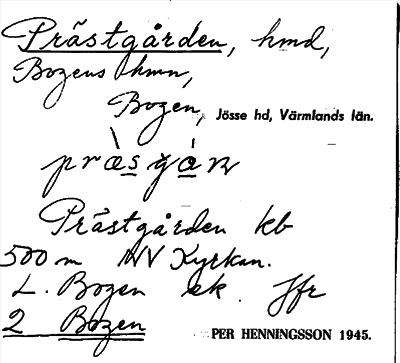 Prästgården, hmd,
Bogens hmn,
Bogen, Jösse hd, Värmlands län.
pràs̲gà̲ṇ
Prästgården kb
500 m NV Kyrkan.
L. Bogen ek. Jfr
2 Bogen PER HENNINGSSON 1945.